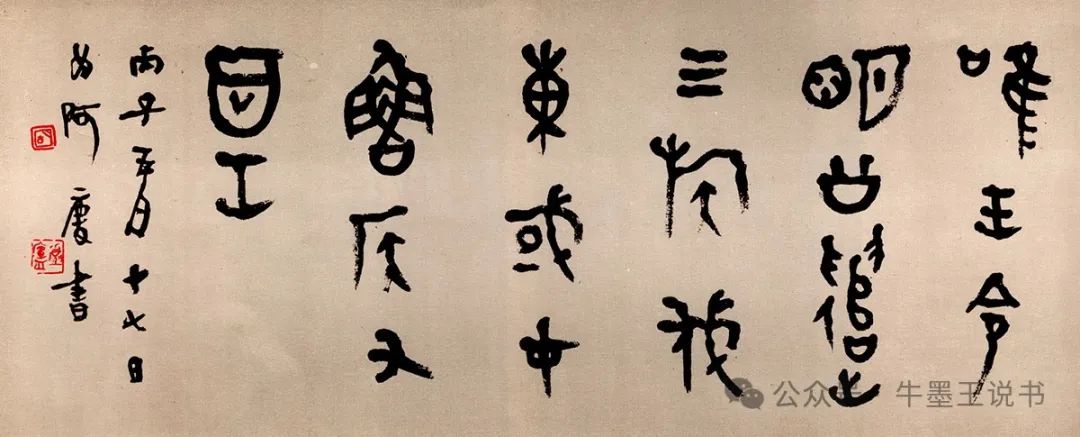 唯王令
明公遣
三族伐
東或才
魯侯又
工
丙子五月十七日
为阿慶書
公众号 牛墨王说书